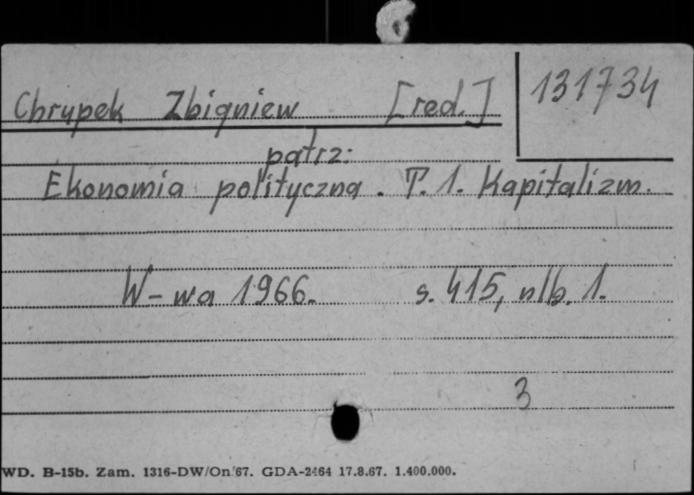 131734
Chrupek Zbigniew [red.]
patrz:
Ekonomia polityczna. T. 1. Kapitalizm.
W-wa 1966. s. 415, nlb. 1.
3
WD. B-15b. Zam. 1316-DW/On/67. GDA-2464 17.8.67. 1.400.000.